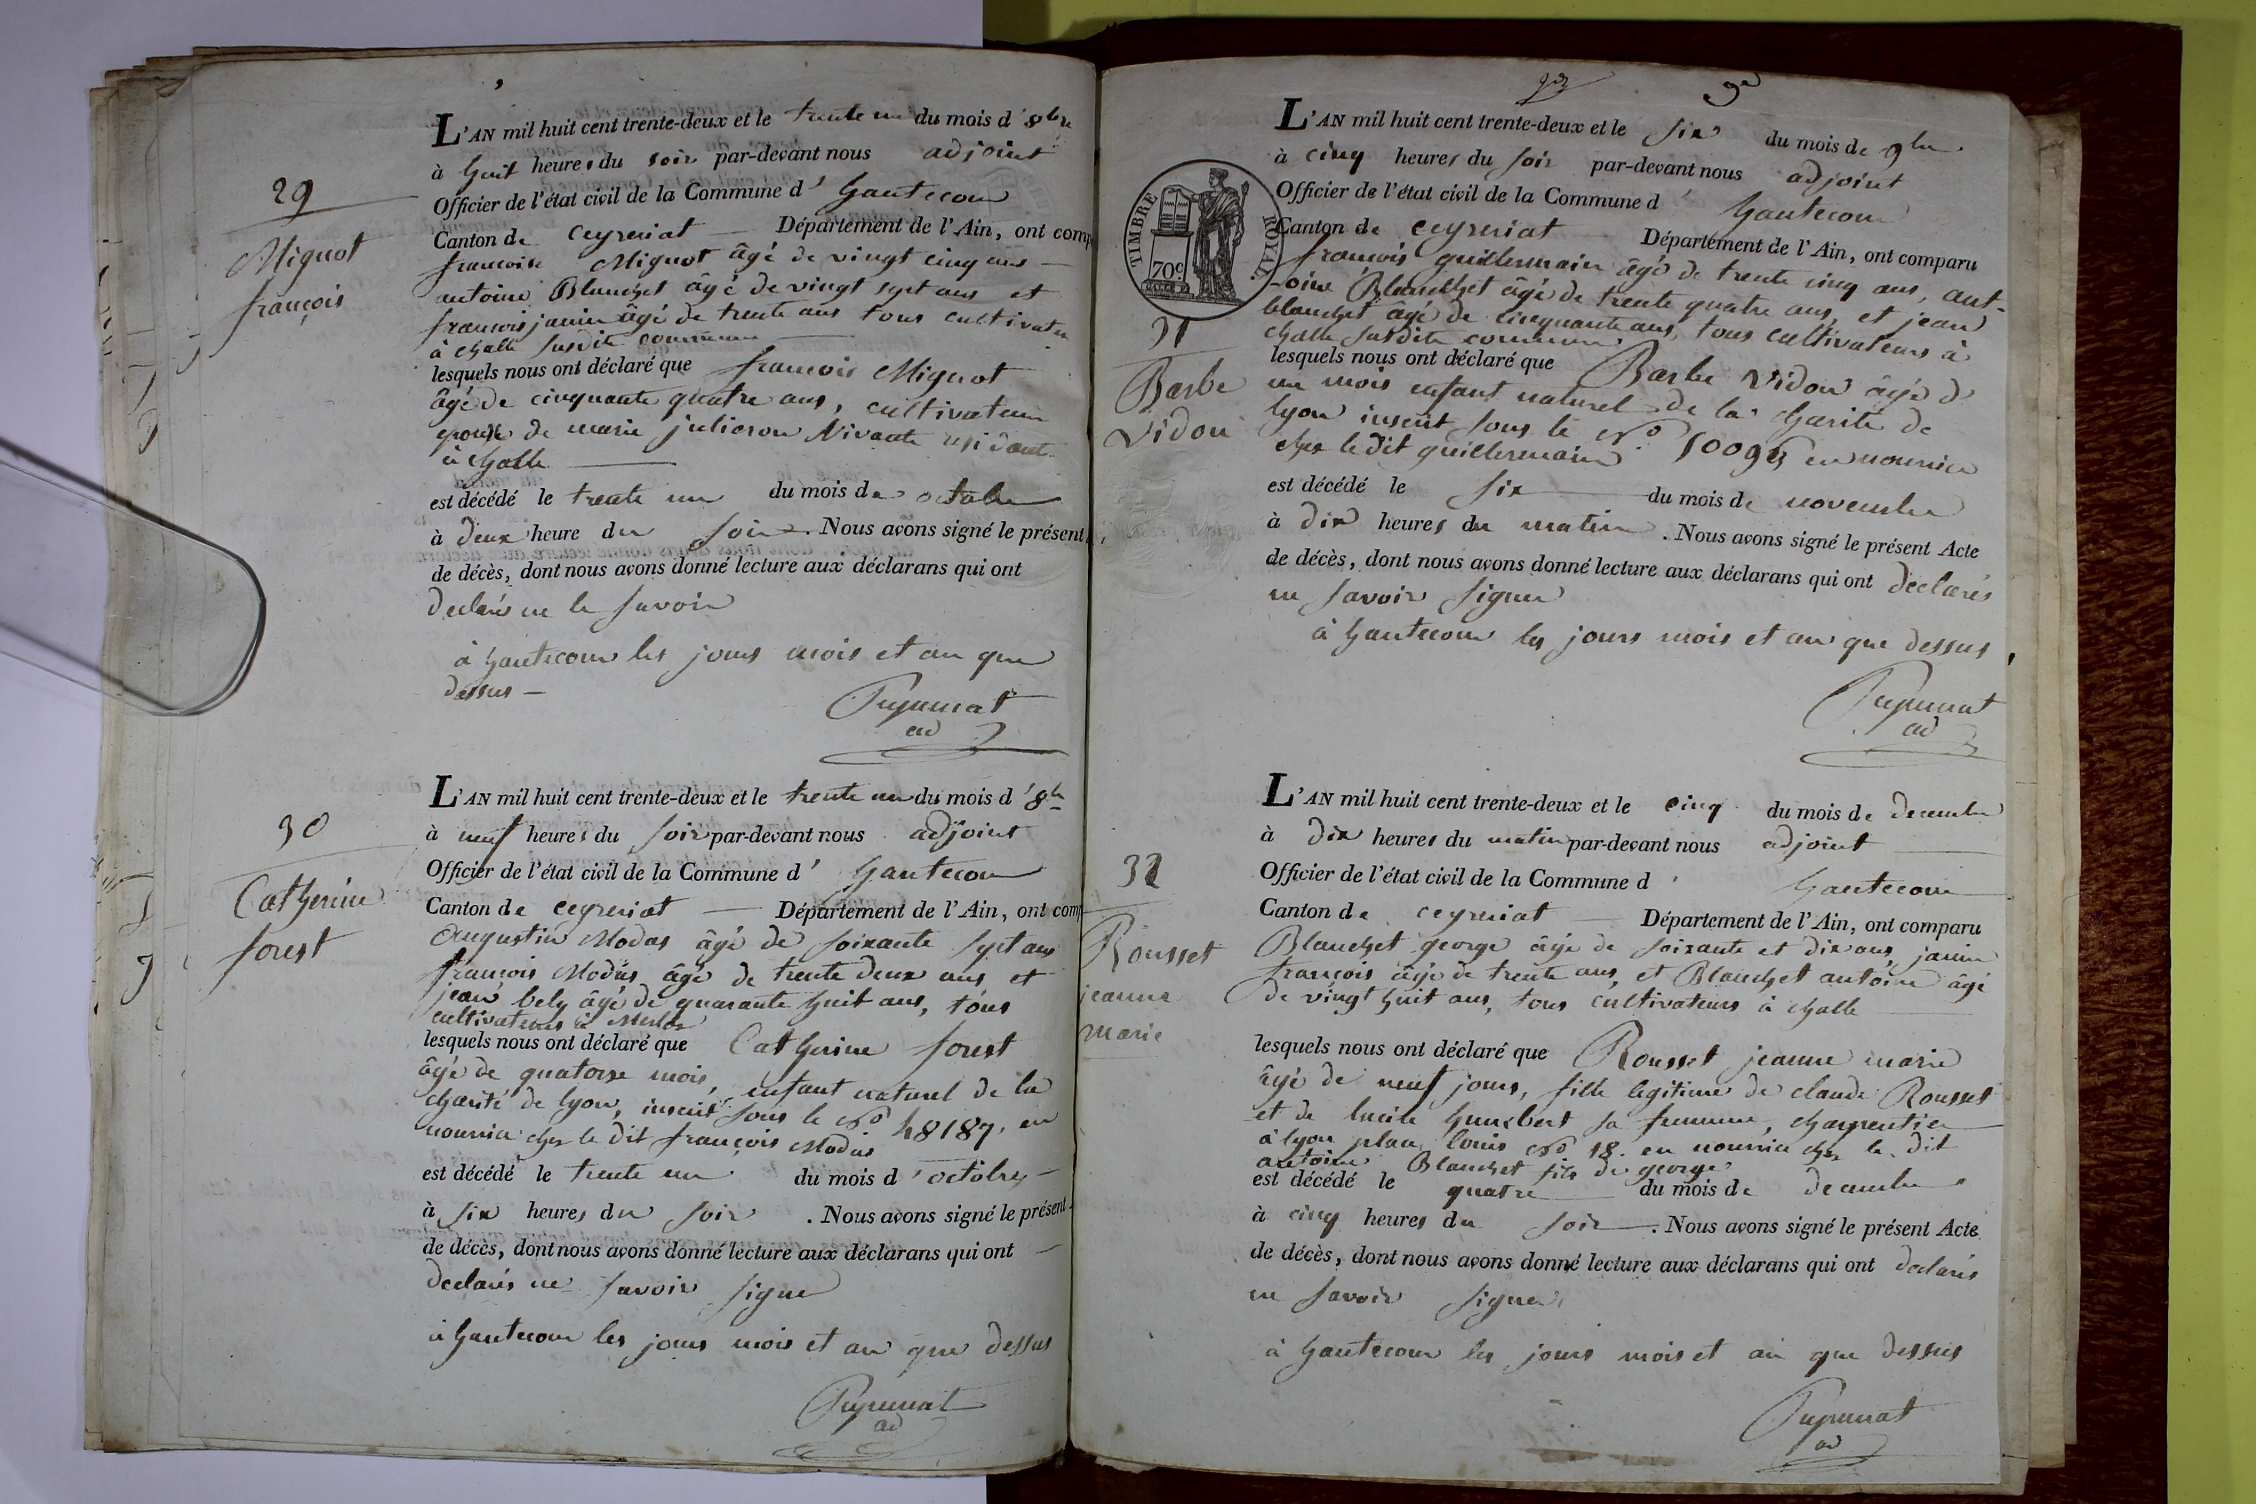 29
Miguot
françois
L'AN mil huit cent trente-deux et le trente un du mois d'8bre
à huit heures du soir par-devant nous adjoint
Officier de l'état civil de la Commune d'hautecour
Canton de ceyzeriat Département de l'Ain, ont comp
françois Miguot âgé de vingt cinq ans
antoine Blanchet âgé de vingt sept ans et
françois janin âgé de trente ans tous cultivateu
à challe susdite commune
lesquels nous ont déclaré que françois Miguot
âgé de cinquante quatre ans, cultivateur
epoux de marie julieron vivante residant
à challe
est décédé le trente un du mois de octobre
à deux heure du soir. Nous avons signé le présent
de décès, dont nous avons donné lecture aux déclarans qui ont
declarés ne le savoir
à hautecour les jours mois et an que
dessus
ad
30
Catherine
forest
L'AN mil huit cent trente-deux et le trente un du mois d'8bre
à neuf heures du soir par-devant nous adjoint
Officier de l'état civil de la Commune d'hautecour
Canton de ceyzeriat Département de l'Ain, ont comp
Augustin Modas âgé de soixante sept ans
françois Modas âgé de trente deux ans et
jean bely âgé de quarante huit ans, tous
cultivateurs à
lesquels nous ont déclaré que Catherine forest
âgé de quatorze mois, enfant naturel de la
charité de lyon, inscrit sous le No 48187, en
nourrice chez le dit françois Modas
est décédé le trente un du mois d'octobre
à six heures du soir. Nous avons signé le présent
de décès, dont nous avons donné lecture aux déclarans qui ont
declarés ne savoir signe
à hautecour les jours mois et an que dessus
ad
TIMBRE ROYAL
70c
31
Barbe
vidon
L'AN mil huit cent trente-deux et le six du mois de 9bre
à cinq heures du soir par-devant nous adjoint
Officier de l'état civil de la Commune d'hautecour
Canton de ceyzeriat Département de l'Ain, ont comparu
françois guillermain âgé de trente cinq ans, ant-
-oine Blanchet âgé de trente quatre ans, et jean
blanchet âgé de cinquante ans, tous cultivateurs à
challe susdite commune
lesquels nous ont déclaré que Barbe vidon âgé d
un mois enfant naturel de la charité de
lyon inscrit sous le No en nourrice
chez le dit guillermain
est décédé le six du mois de novembre
à dix heures du matin. Nous avons signé le présent Acte
de décès, dont nous avons donné lecture aux déclarans qui ont declarés
ne savoir signer
à hautecour les jours mois et an que dessus
ad
32
Rousset
jeanne
marie
L'AN mil huit cent trente-deux et le cinq du mois de decembre
à dix heures du matin par-devant nous adjoint
Officier de l'état civil de la Commune d'hautecour
Canton de ceyzeriat Département de l'Ain, ont comparu
Blanchet george âgé de soixante et dix ans, janin
françois âgé de trente ans, et Blanchet antoine âgé
de vingt huit ans, tous cultivateurs à challe
lesquels nous ont déclaré que Rousset jeanne marie
âgé de neuf jours, fille legitime de claude Rousset
et de lucile humbert sa femme, charpentier
à lyon place louis No 18. en nourrice chez le dit
antoine Blanchet fils de george
est décédé le quatre du mois de decembre
à cinq heures du soir. Nous avons signé le présent Acte
de décès, dont nous avons donné lecture aux déclarans qui ont declarés
ne savoir signer
à hautecour les jours mois et an que dessus
ad